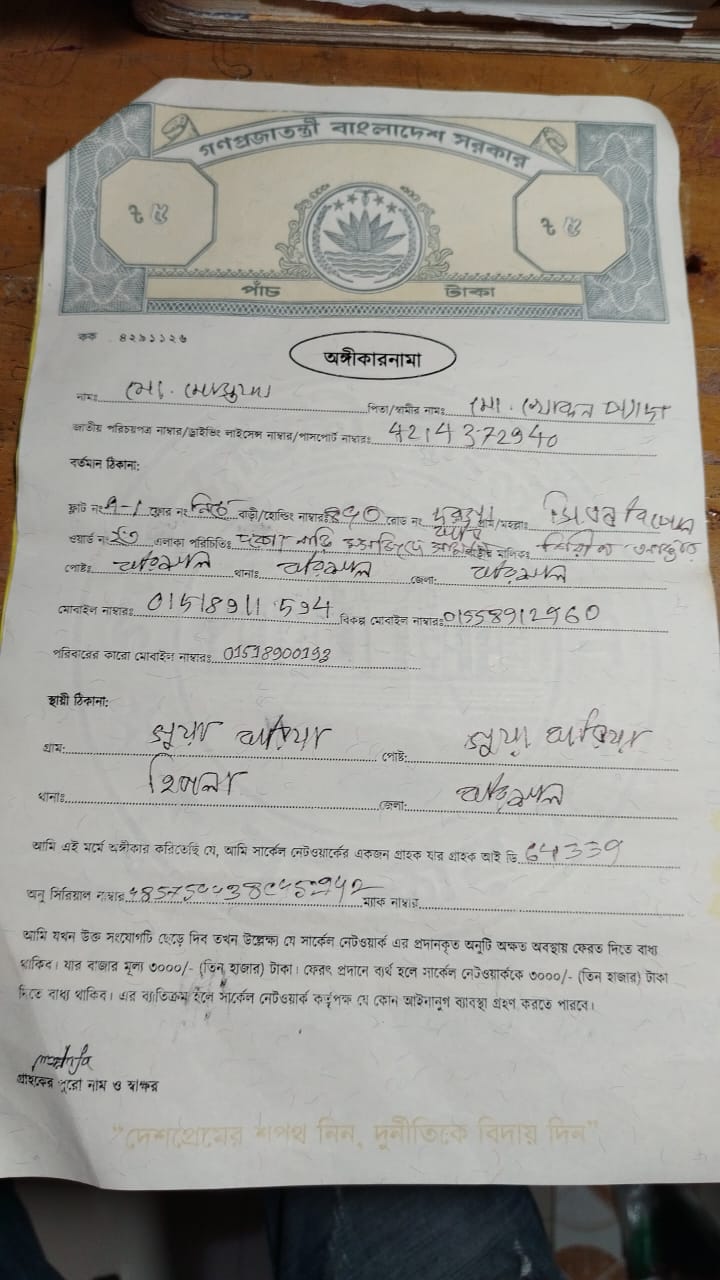 গণপ্রজাতন্ত্রী বাংলাদেশ সরকার
৳ ৫ ৳ ৫
পাঁচ টাকা
কক ৪২৯১১২৬
অঙ্গীকারনামা
নামঃ মো. পিতা/স্বামীর নামঃ মো.
জাতীয় পরিচয়পত্র নাম্বার/ড্রাইভিং লাইসেন্স নাম্বার/পাসপোর্ট নাম্বারঃ 4214372940
বর্তমান ঠিকানা:
ফ্লাট নং A-1 ফ্লোর নং বাড়ী/হোল্ডিং নাম্বারঃ রোড নং গ্রাম/মহল্লাঃ
ওয়ার্ড নং এলাকা পরিচিতিঃ বাড়ির মালিকঃ
পোষ্টঃ বরিশাল থানাঃ বরিশাল জেলা: বরিশাল
মোবাইল নাম্বারঃ 01518911594 বিকল্প মোবাইল নাম্বারঃ 01558912960
পরিবারের কারো মোবাইল নাম্বারঃ
স্থায়ী ঠিকানা:
গ্রাম: পোষ্ট:
থানাঃ হিজলা জেলা: বরিশাল
আমি এই মর্মে অঙ্গীকার করিতেছি যে, আমি সার্কেল নেটওয়ার্কের একজন গ্রাহক যার গ্রাহক আই ডি 64339
অনু সিরিয়াল নাম্বার ম্যাক নাম্বার
আমি যখন উক্ত সংযোগটি ছেড়ে দিব তখন উল্লেক্ষ্য যে সার্কেল নেটওয়ার্ক এর প্রদানকৃত অনুটি অক্ষত অবস্থায় ফেরত দিতে বাধ্য
থাকিব। যার বাজার মূল্য ৩০০০/- (তিন হাজার) টাকা। ফেরৎ প্রদানে ব্যর্থ হলে সার্কেল নেটওয়ার্ককে ৩০০০/- (তিন হাজার) টাকা
দিতে বাধ্য থাকিব। এর ব্যতিক্রম হলে সার্কেল নেটওয়ার্ক কর্তৃপক্ষ যে কোন আইনানুগ ব্যাবস্থা গ্রহণ করতে পারবে।
গ্রাহকের পুরো নাম ও স্বাক্ষর
"দেশপ্রেমের শপথ নিন, দুর্নীতিকে বিদায় দিন"